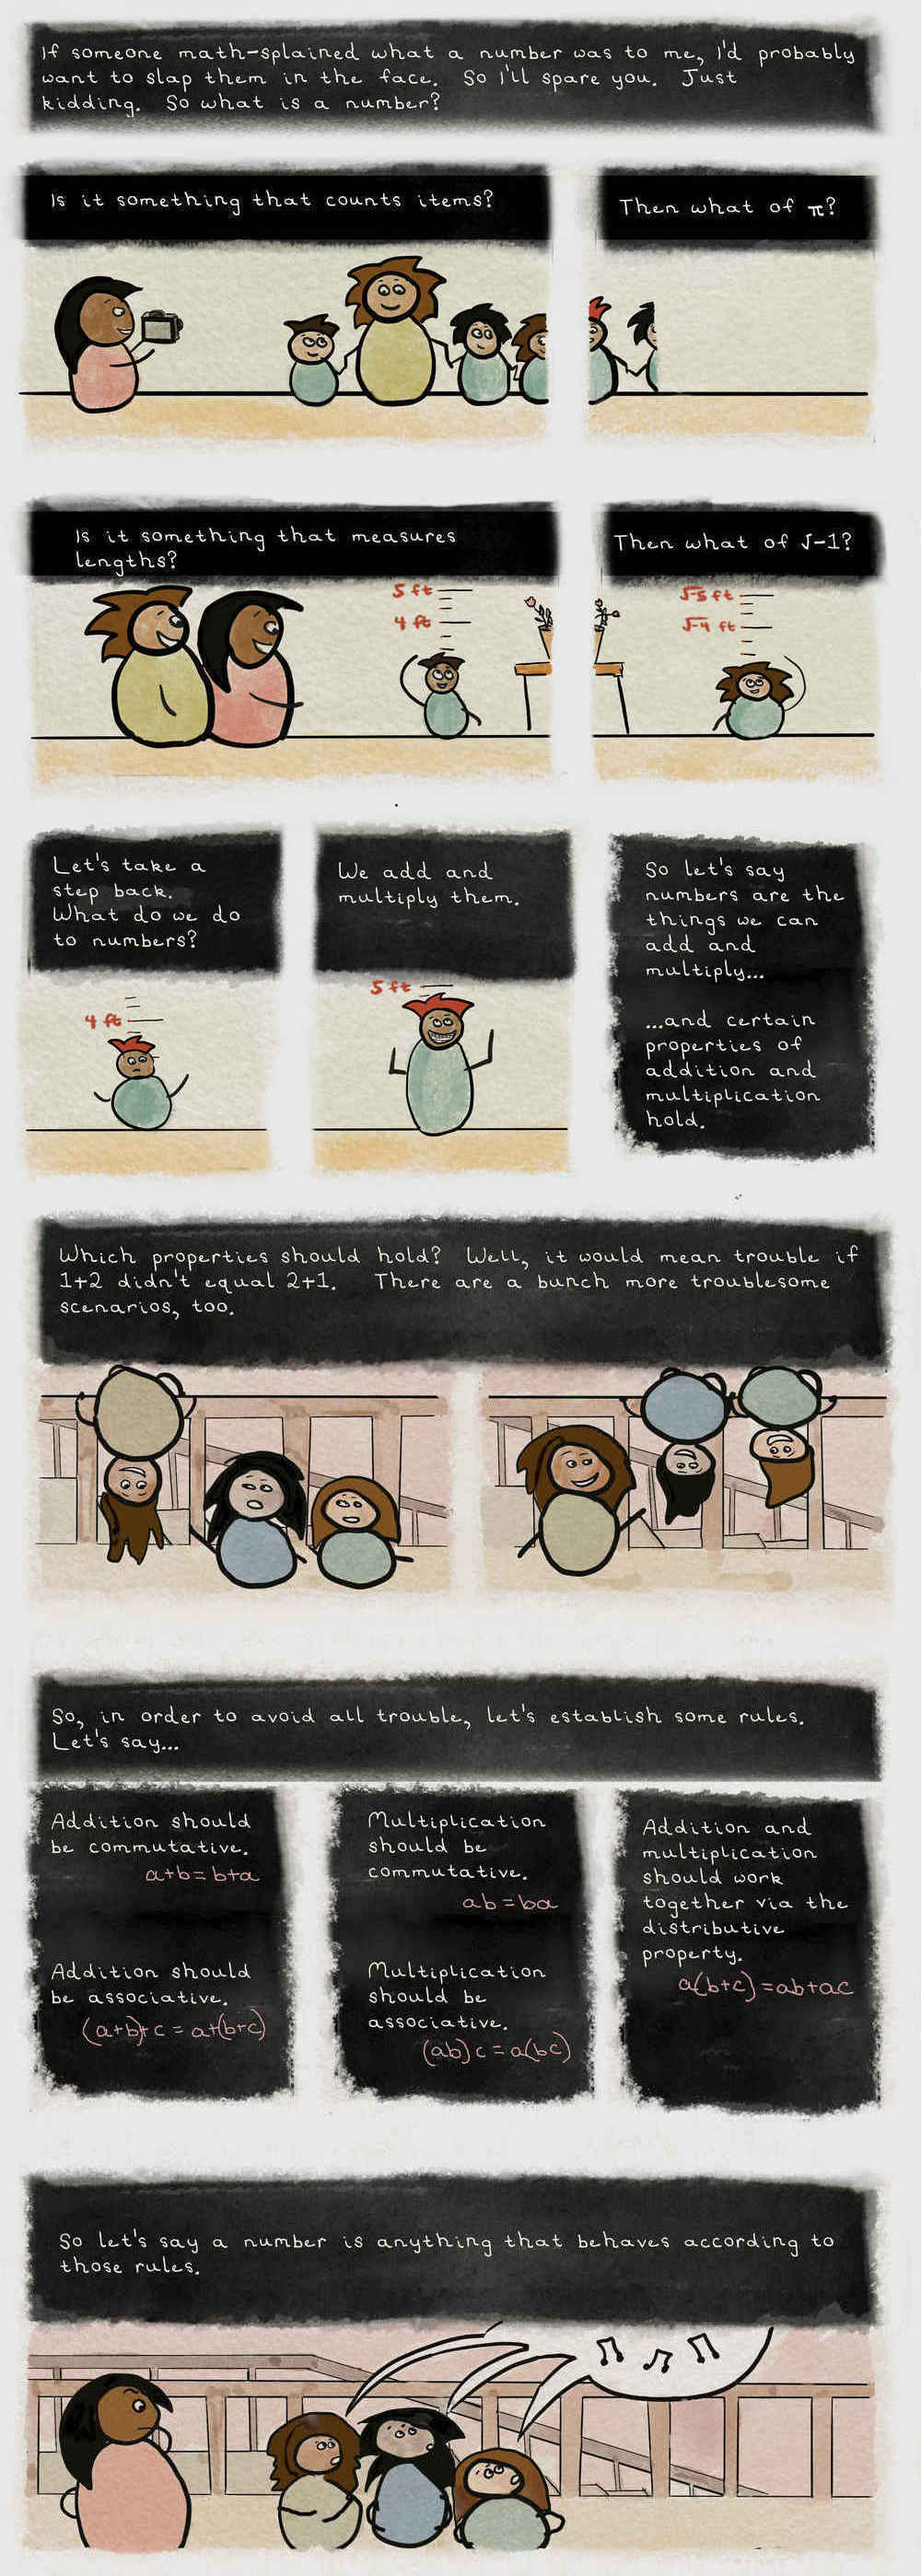 If someone math-splained what a number was to me, I'd probably
want to slap them in the face. So I'll spare you. Just
kidding. So what is a number?
Is it something that counts items?
Then what of π?
Is it something that measures
lengths?
Then what of √-1?
5 ft
4 ft
√-5 ft
√-4 ft
Let's take a
step back.
What do we do
to numbers?
4 ft
We add and
multiply them.
5 ft
So let's say
numbers are the
things we can
add and
multiply...
...and certain
properties of
addition and
multiplication
hold.
Which properties should hold? Well, it would mean trouble if
1+2 didn't equal 2+1. There are a bunch more troublesome
scenarios, too.
So, in order to avoid all trouble, let's establish some rules.
Let's say...
Addition should
be commutative.
a+b=b+a
Addition should
be associative.
(a+b)+c = a+(b+c)
Multiplication
should be
commutative.
ab=ba
Multiplication
should be
associative.
(ab)c=a(bc)
Addition and
multiplication
should work
together via the
distributive
property.
a(b+c)=ab+ac
So let's say a number is anything that behaves according to
those rules.